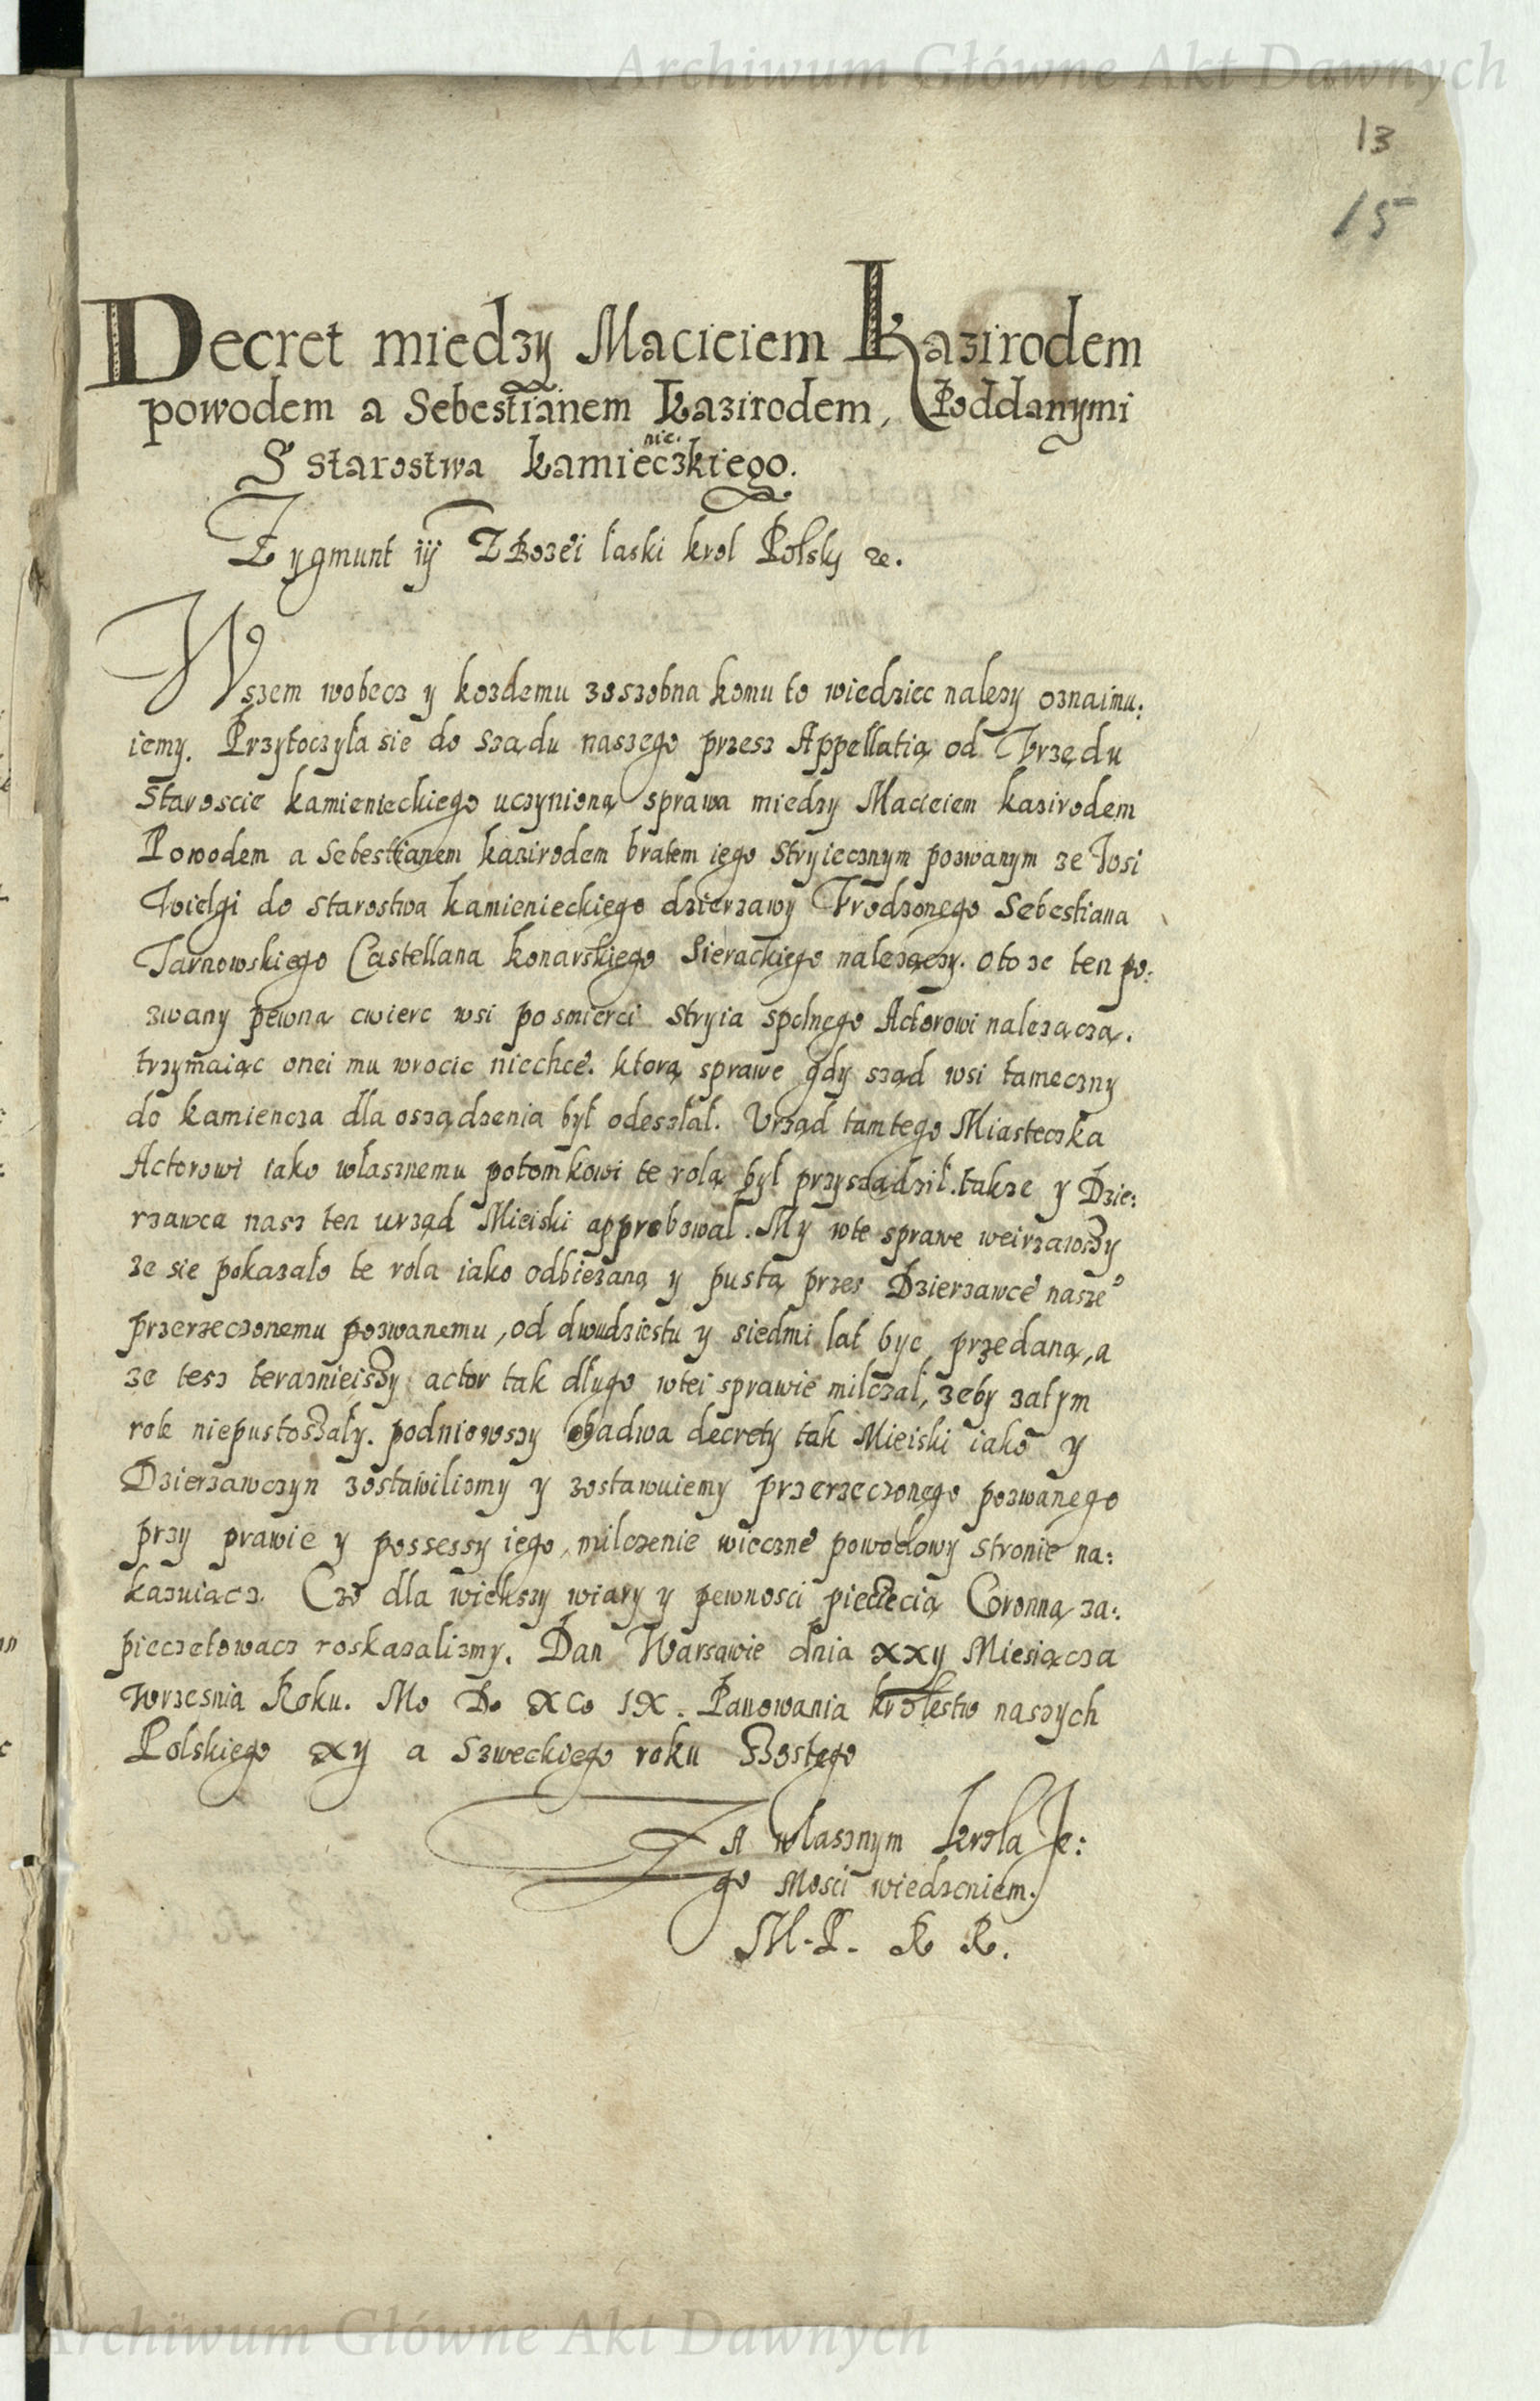 Archiwum Główne Akt Dawnych
13
15
Decret miedzy Macieiem Kazirodem
powodem a Sebestianem Kazirodem, Poddanymi
S starostwa kamienieczkiego.
Zygmunt iij Z Bozei laski krol Polsky &c.
Wszem wobecz y kozdemu zoszobna komu to wiedziec nalezy oznaimu:
iemy. Przytoczyła sie do sządu naszego przesz Appellatią od Vrzędu
Staroscie kamienieckiego uczynioną sprawa miedzy Macieiem kazirodem
Powodem a Sebestianem kazirodem bratem iego Stryiecznym pozwanym ze Wsi
Wielgi do starostwa kamienieckiego dzierzawy Vrodzonego Sebestiana
Tarnowskiego Castellana konarskiego Sierackiego nalezączy. oto ze ten po:
zwany pewną cwierc wsi po smierci stryia spolnego Actorowi nalezączą.
trzymaiąc onei mu wrocic niechce. ktorą sprawe gdy sząd wsi tameczny
do kamiencza dla osządzenia był odeszłał. Urząd tamtego Miasteczka
Actorowi iako własznemu potomkowi te rolą był przysządził. takze y Dzie:
rzawca nasz ten urząd Mieiski approbował. My wte sprawe weirzawszy
ze sie pokazało te rola iako odbiezaną y pustą przes Dzierzawcę naszeº
przerzeczonemu pozwanemu, od dwudziestu y siedmi lat byc przedaną, a
ze tesz teraznieiszy actor tak długo wtei sprawie milczał, zeby zatym
role niepustoszały. podniowszy obadwa decrety tak Mieiski iako y
Dzierzawczyn zostawilismy y zostawuiemy przerzeczonego pozwanego
przy prawie y possessy iego, milczenie wieczne powodowy stronie na:
kazuiącz. Czo dla większy wiary y pewnosci pieczecią Coronną za:
pieczetowacz roskazalismy. Dan Warsawie dnia xxy Miesiącza
Wrzesnia Roku. Mo Do XCo IX. Panowania krolestw naszych
Polskiego xy a Szweckiego roku Szostego
Za własznym krola Je:
go Mosci wiedzeniem.
M. P. R R.
Archiwum Główne Akt Dawnych